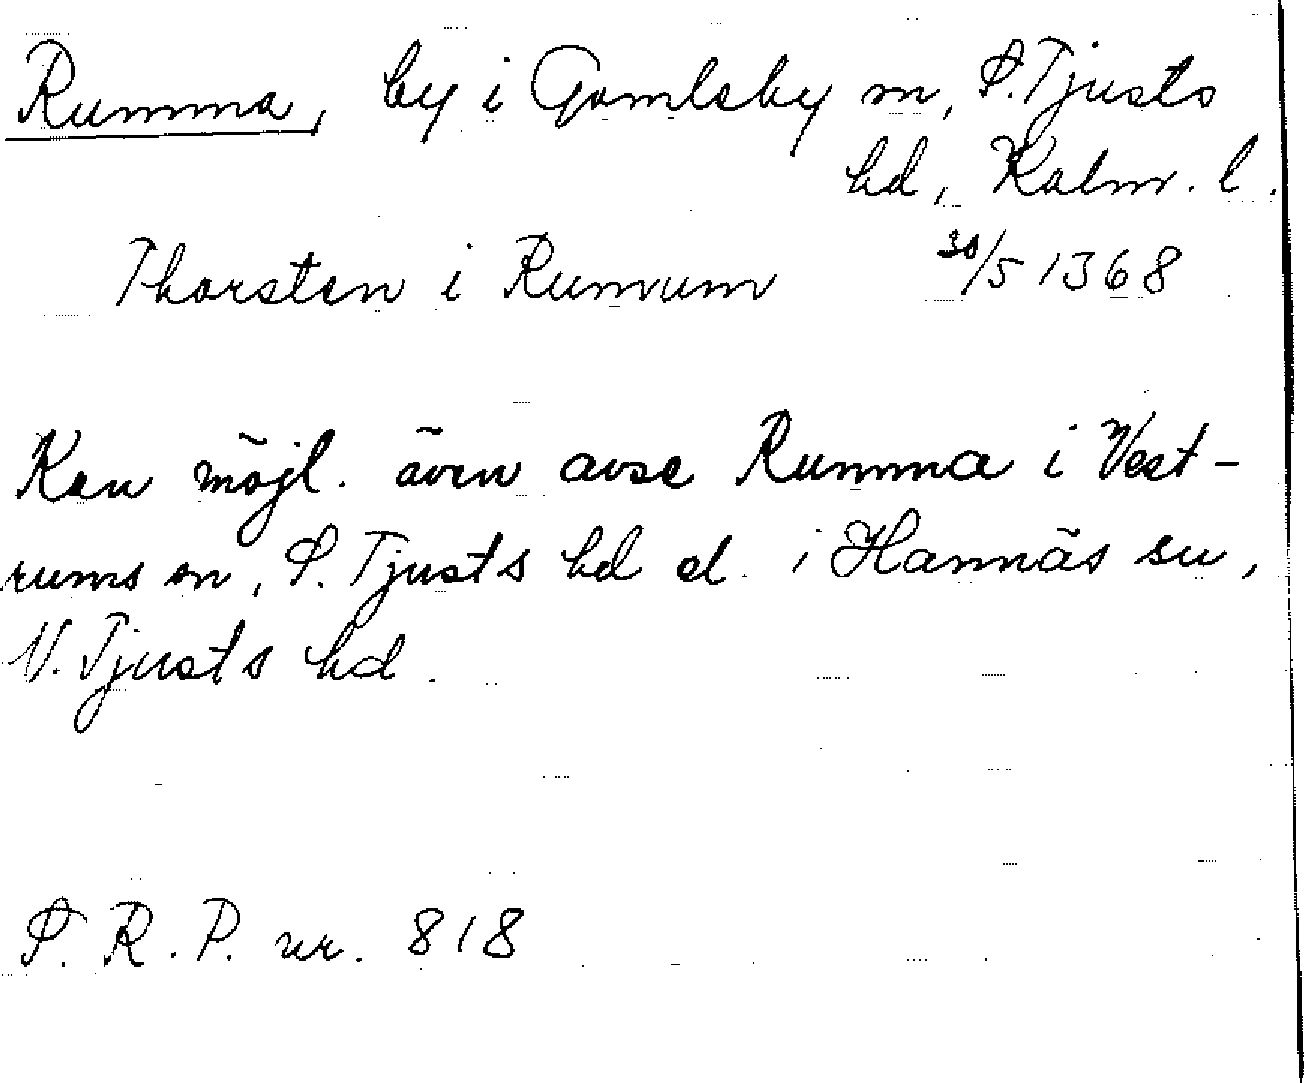 Rumma, by i Gamleby sn, S. Tjusts
hd, Kalm. l.
Thorsten i Rumum 30/5 1368
Kan möjl. även avse Rumma i Vest-
rums sn, S. Tjusts hd el. i Hannäs sn,
N. Tjusts hd.
S. R. P. nr. 818